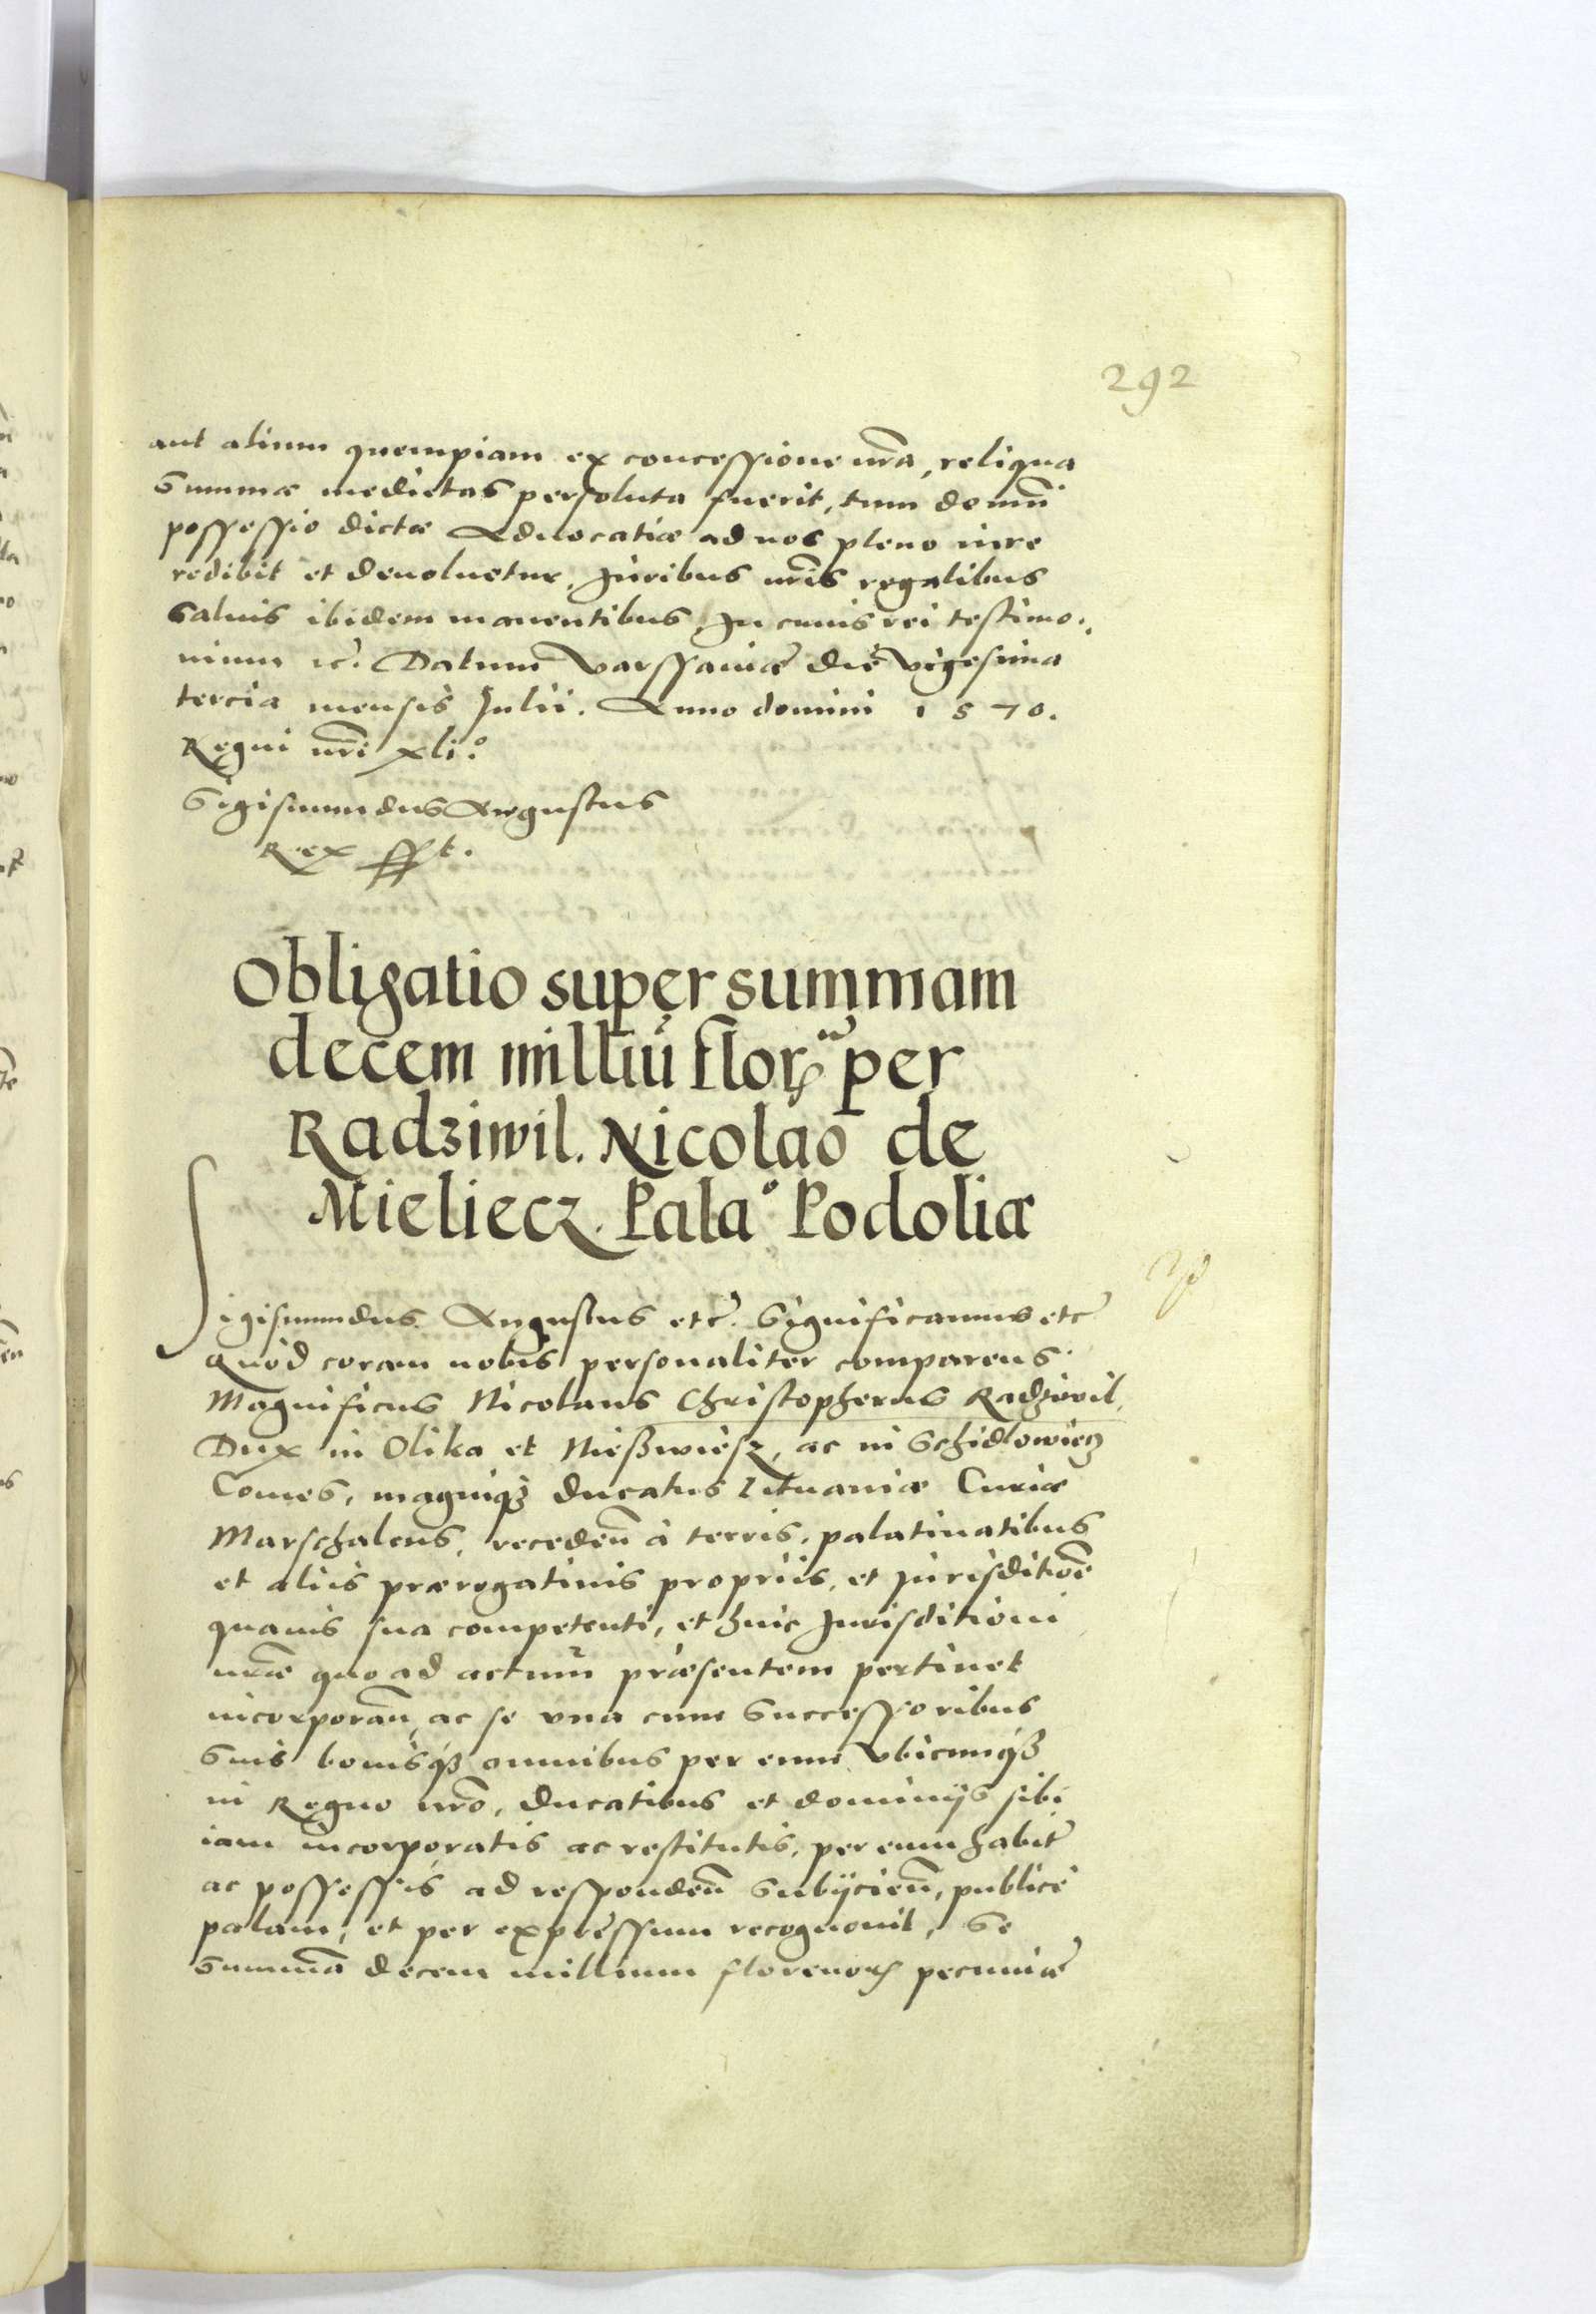 292
aut alium quempiam ex concessione nr̃a, reliqua
Summæ medietas persoluta fuerit, tum demũ
possessio dictæ Aduocatiæ ad nos pleno iure
redibit et deuoluetur, Juribus nr̃is regalibus
saluis ibidem manentibus, In cuius rei testimo..
nium ec̃. Datum Varssauiæ die Vigesima
tercia mensis Julii. Anno domini 1570.
Regni nr̃i xli.º
Sigismundus Augustus
Rex sst.
Obligatio super summam
decem milliũ flor. per
Radziwil. Nicolao de
Mieliecz. Palaº Podoliæ
Sigismundus Augustus etc̃. Significamus etc̃
Quod coram nobis personaliter comparens
Magnificus Nicolaus Christopherus Radziwil,
Dux in Olika et Nießwiesz, ac in Schidlowiecz
Comes, magniqʒ ducatus Lituaniæ Curiæ
Marschalcus, recedeñ à terris, palatinatibus
et aliis prærogatiuis propriis, et Jurisditiõe
quauis sua competenti, et huic Jurisditioni
nr̃æ quo ad actum præsentem pertinet
incorporañ, ac se vna cum Successoribus
Suis bonisqʒ omnibus per eum Vbicunqʒ
in Regno nr̃o, ducatibus et dominijs sibi
iam incorporatis ac restitutis, per eum habit̃
ac possessis ad respondeñ Subijcieñ, publice
palam, et per expressum recognouit, Se
Summã decem millium florenorꝝ pecuniæ